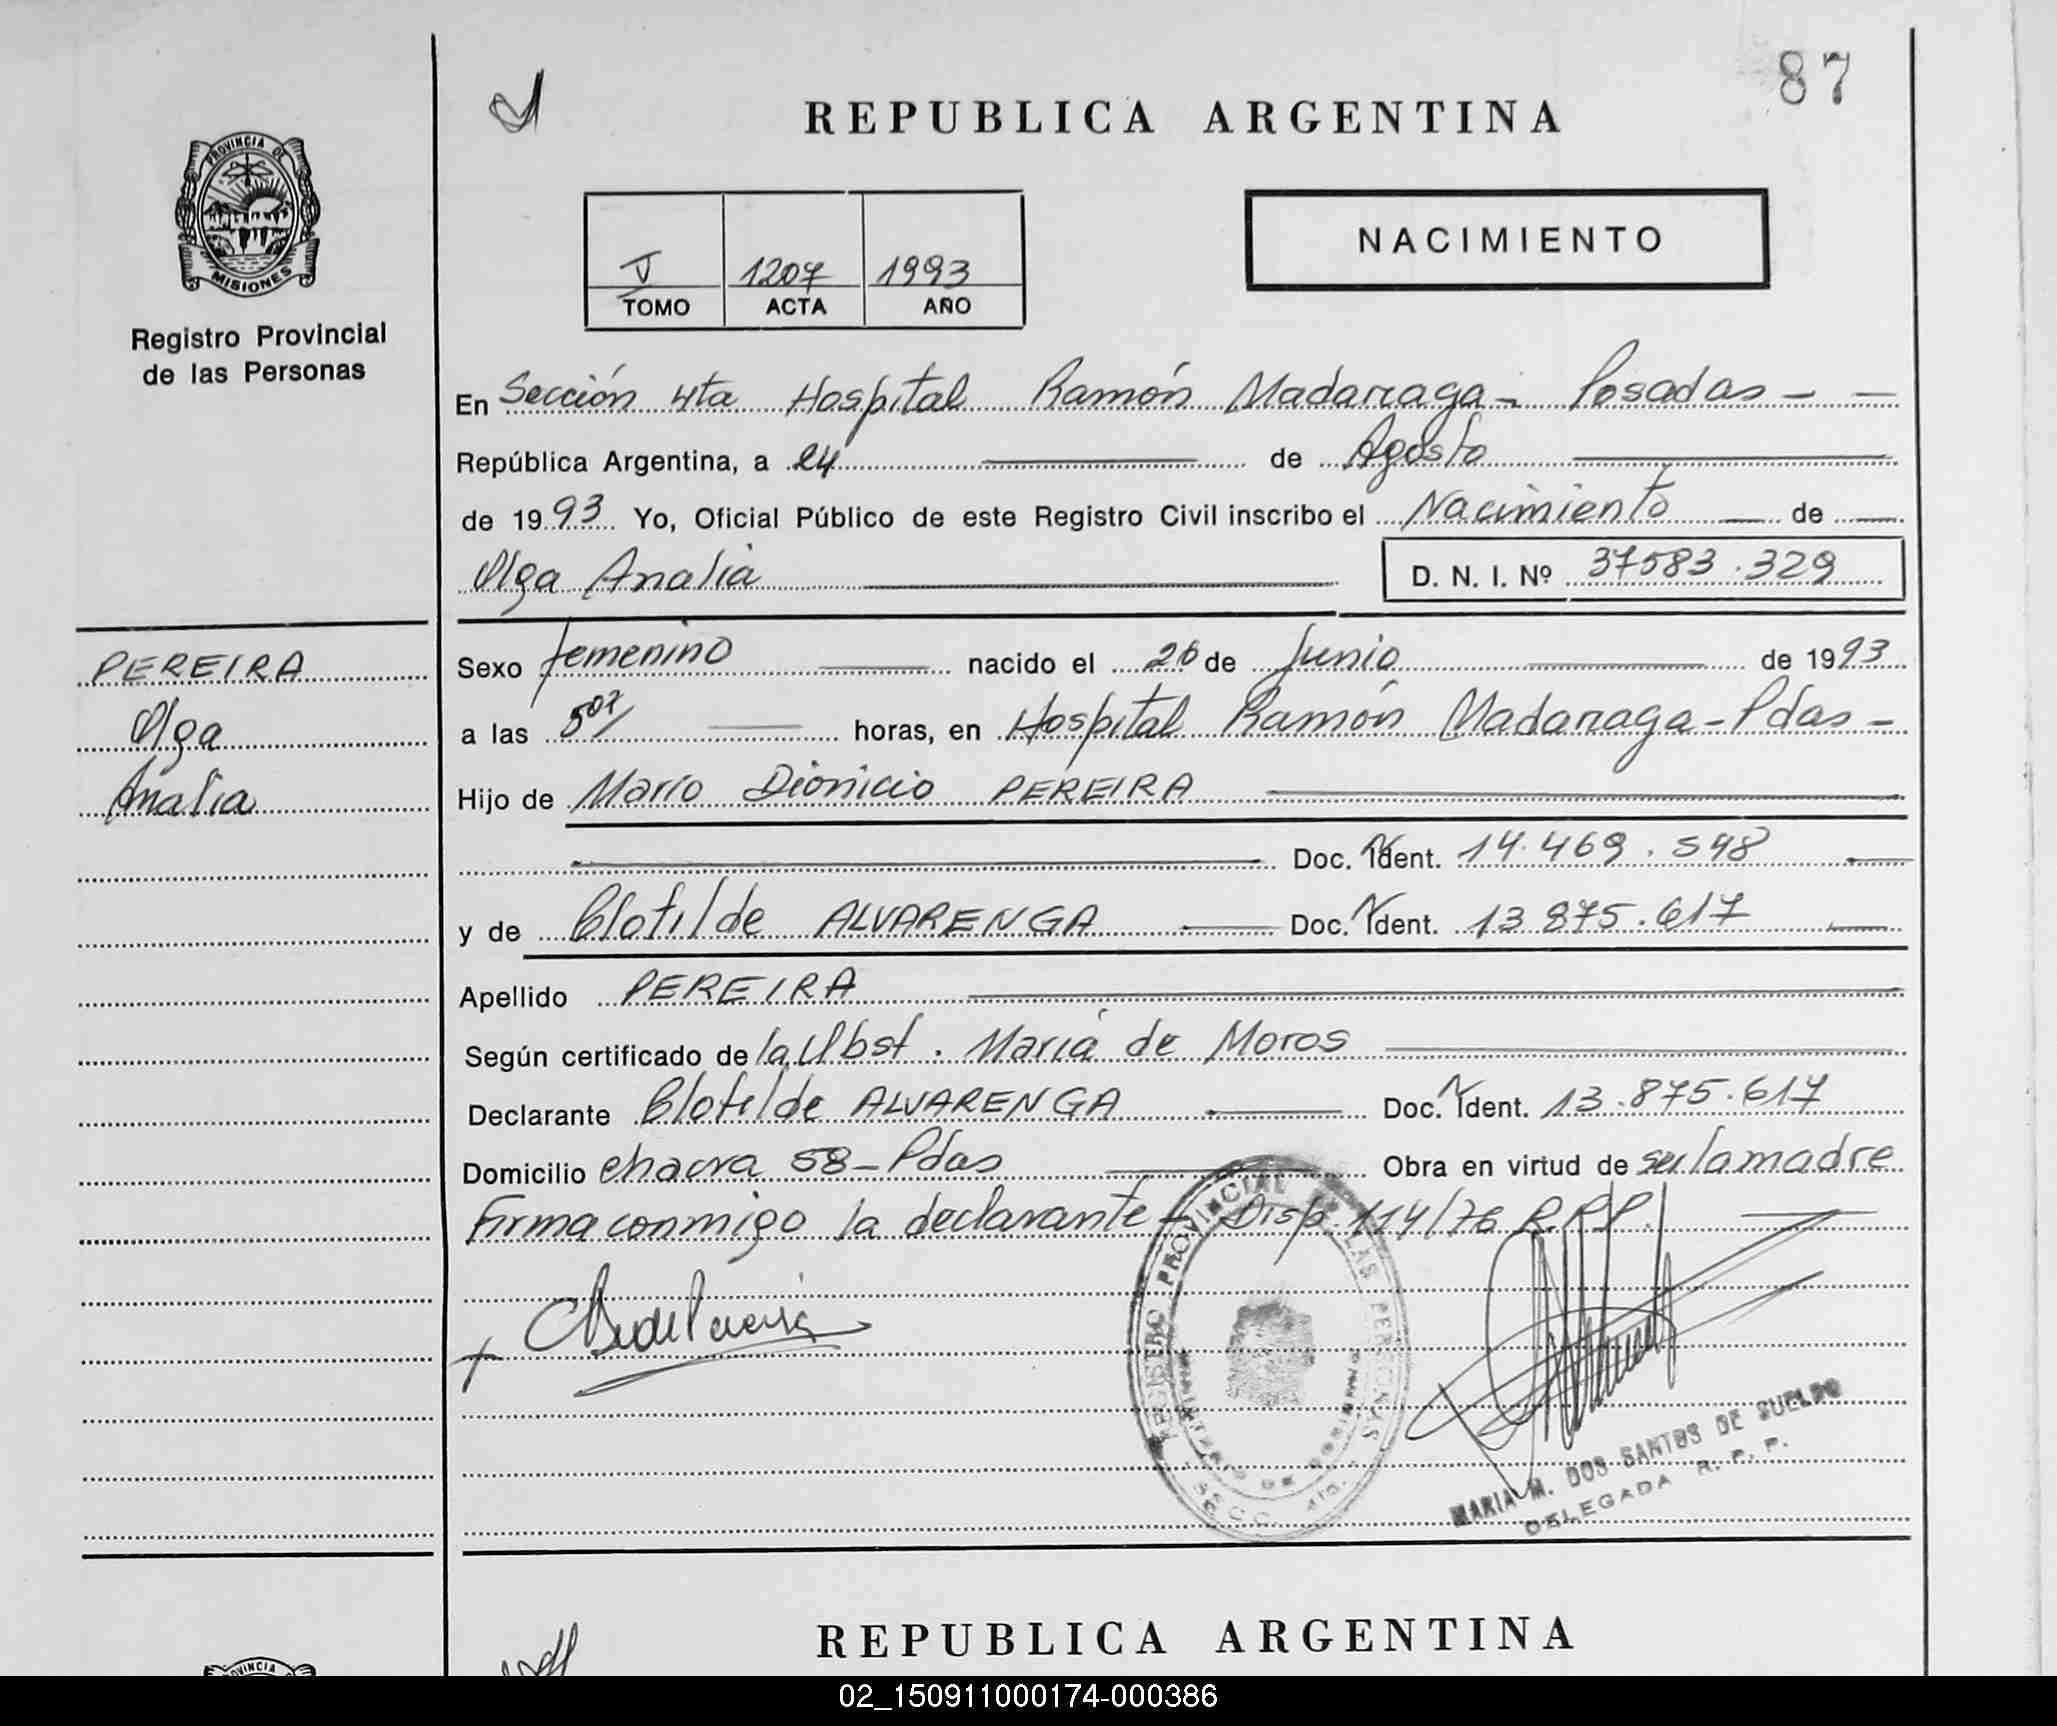 87
REPUBLICA ARGENTINA
PROVINCIA DE
MISIONES
Registro Provincial
de las Personas
V 1207 1993
TOMO ACTA AÑO
NACIMIENTO
En Sección 4ta Hospital Ramón Madariaga - Posadas - -
República Argentina, a 24 de Agosto
de 1993 Yo, Oficial Público de este Registro Civil inscribo el Nacimiento de
Olga Analia D. N. I. Nº 37583.329
PEREIRA
Olga
Analia
Sexo femenino nacido el 26 de Junio de 1993
a las 5 horas, en Hospital Ramón Madariaga - Pdas -
Hijo de Mario Dionicio PEREIRA
Doc. Ident. 14.469.548
y de Clotilde ALVARENGA Doc. Ident. 13.875.617
Apellido PEREIRA
Según certificado de la Obst. María de Moros
Declarante Clotilde ALVARENGA Doc. Ident. 13.875.617
Domicilio chacra 58 - Pdas Obra en virtud de ser la madre
Firma conmigo la declarante - Disp. 114/76 R.P.P.
REGISTRO PROVINCIAL DE LAS PERSONAS
SECC. 4ta.
MARIA M. DOS SANTOS DE SUELDO
DELEGADA R. P. P.
REPUBLICA ARGENTINA
02_150911000174-000386